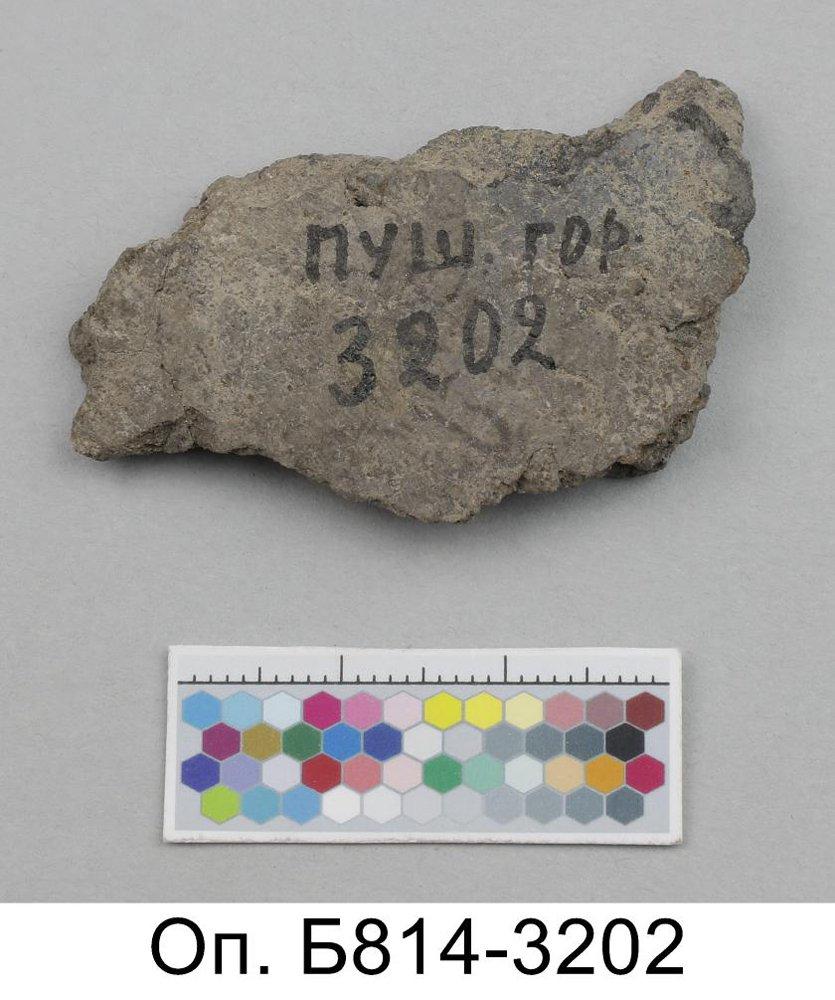 ПУШ. ГОР.
3202
Оп. Б814-3202